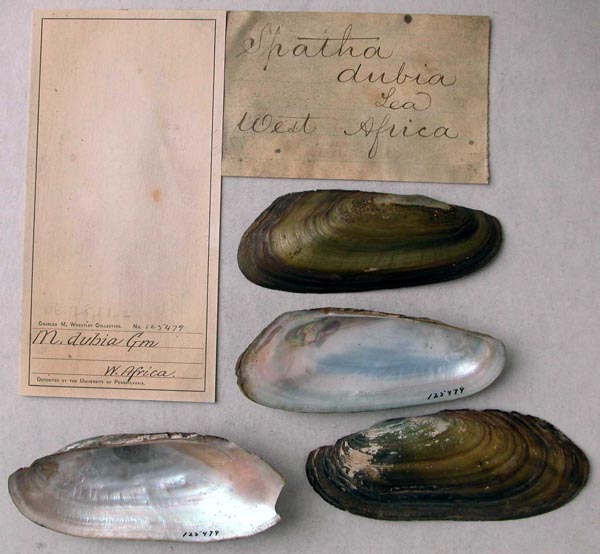 Spatha
dubia
Lea
West Africa
CHARLES M. WHEATLEY COLLECTION. No. 125479
M. dubia Gm
W. Africa.
DEPOSITED BY THE UNIVERSITY OF PENNSYLVANIA.
125479
125479